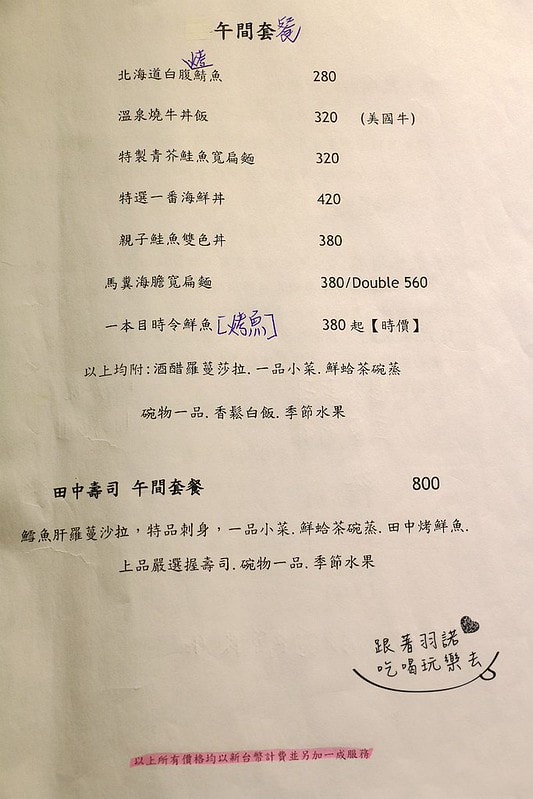 午間套餐
烤
北海道白腹鯖魚 280
溫泉燒牛丼飯 320 (美國牛)
特製青芥鮭魚寬扁麵 320
特選一番海鮮丼 420
親子鮭魚雙色丼 380
馬糞海膽寬扁麵 380/Double 560
一本目時令鮮魚[烤魚] 380 起【時價】
以上均附:酒醋羅蔓莎拉.一品小菜.鮮蛤茶碗蒸
碗物一品.香鬆白飯.季節水果
田中壽司 午間套餐 800
鱈魚肝羅蔓沙拉，特品刺身，一品小菜.鮮蛤茶碗蒸.田中烤鮮魚.
上品嚴選握壽司.碗物一品.季節水果
跟著羽諾
吃喝玩樂去
以上所有價格均以新台幣計費並另加一成服務